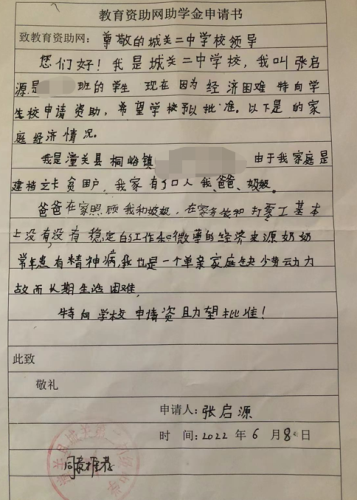 教育资助网助学金申请书
致教育资助网：尊敬的城关二中学校领导
您们好！我是城关二中学校，我叫张启
源是 班的学生 现在因为经济困难 特向学
生校申请资助，希望学校予以批准。以下是的家
庭经济情况。
我是潼关县桐峪镇 由于我家庭是
建档立卡贫困户，我家有 口人 我爸爸、奶奶。
爸爸在家照顾我和奶奶，在家务农和打零工基本
上没有没有稳定的工作和微薄的经济来源奶奶
常患有精神病，我也是一个单亲家庭缺少劳动力
故而长期生活困难，
特向学校申请资助望批准！
此致
敬礼
申请人：张启源
时间：2022年6月8日
同意推荐